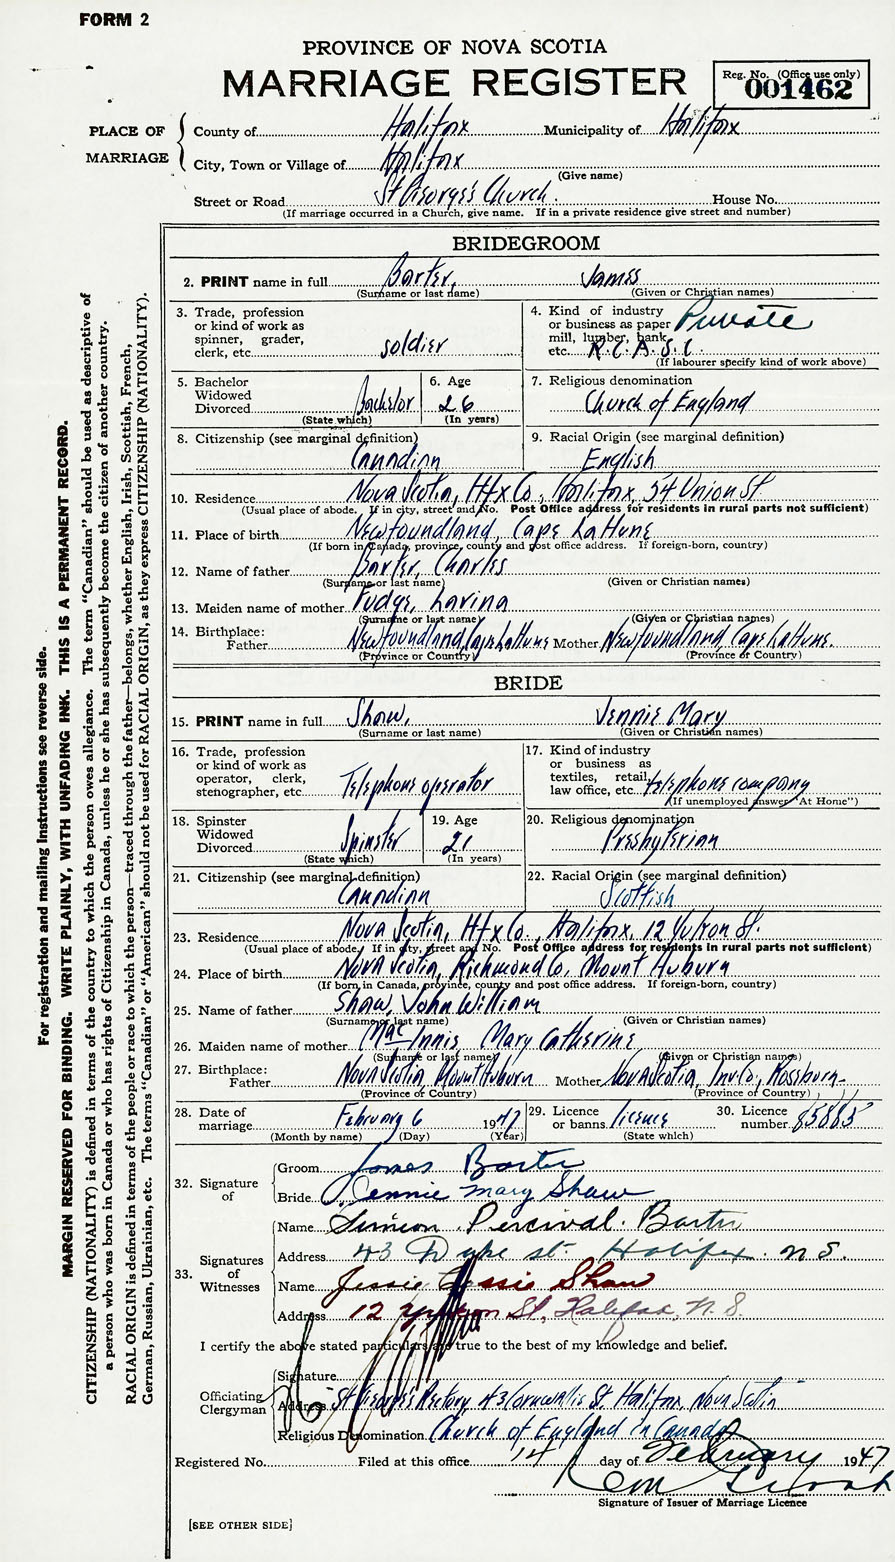 FORM 2
PROVINCE OF NOVA SCOTIA
MARRIAGE REGISTER
Reg. No. (Office use only)
001462
PLACE OF MARRIAGE
County of Halifax Municipality of Halifax
City, Town or Village of Halifax
(Give name)
Street or Road St George's Church. House No.
(If marriage occurred in a Church, give name. If in a private residence give street and number)
BRIDEGROOM
2. PRINT name in full Barter, James
(Surname or last name) (Given or Christian names)
3. Trade, profession or kind of work as spinner, grader, clerk, etc. soldier
4. Kind of industry or business as paper mill, lumber, bank, etc. Private R.C.A.S.C.
(If labourer specify kind of work above)
5. Bachelor Widowed Divorced Bachelor
(State which)
6. Age 26
(In years)
7. Religious denomination
Church of England
8. Citizenship (see marginal definition)
Canadian
9. Racial Origin (see marginal definition)
English
10. Residence Nova Scotia, Hfx Co., Halifax, 54 Union St
(Usual place of abode. If in city, street and No. Post Office address for residents in rural parts not sufficient)
11. Place of birth Newfoundland, Cape La Hune
(If born in Canada, province, county and post office address. If foreign-born, country)
12. Name of father Barter, Charles
(Surname or last name) (Given or Christian names)
13. Maiden name of mother Fudge, Lavina
(Surname or last name) (Given or Christian names)
14. Birthplace: Father Newfoundland, Cape La Hune Mother Newfoundland, Cape La Hune.
(Province or Country) (Province or Country)
BRIDE
15. PRINT name in full Shaw, Jennie Mary
(Surname or last name) (Given or Christian names)
16. Trade, profession or kind of work as operator, clerk, stenographer, etc. Telephone operator
17. Kind of industry or business as textiles, retail, law office, etc. telephone company
(If unemployed answer "At Home")
18. Spinster Widowed Divorced Spinster
(State which)
19. Age 21
(In years)
20. Religious denomination
Presbyterian
21. Citizenship (see marginal definition)
Canadian
22. Racial Origin (see marginal definition)
Scottish
23. Residence Nova Scotia, Hfx Co., Halifax, 12 Yukon St.
(Usual place of abode. If in city, street and No. Post Office address for residents in rural parts not sufficient)
24. Place of birth Nova Scotia, Richmond Co, Mount Auburn
(If born in Canada, province, county and post office address. If foreign-born, country)
25. Name of father Shaw, John William
(Surname or last name) (Given or Christian names)
26. Maiden name of mother MacInnis Mary Catherine
(Surname or last name) (Given or Christian names)
27. Birthplace: Father Nova Scotia, Mount Auburn Mother Nova Scotia, Inv. Co,
(Province or Country) (Province or Country)
28. Date of marriage February 6 1947
(Month by name) (Day) (Year)
29. Licence or banns licence
(State which)
30. Licence number 85865
32. Signature of
Groom James Barter
Bride Jennie Mary Shaw
33. Signatures of Witnesses
Name Simeon Percival Barter
Address 43 Duke st. Halifax. N.S.
Name Jessie Shaw
Address 12 Yukon St, Halifax, N.S.
I certify the above stated particulars are true to the best of my knowledge and belief.
Officiating Clergyman
Signature
Address St George's Rectory 43 Cornwallis St. Halifax, Nova Scotia
Religious Denomination Church of England in Canada
Registered No. Filed at this office 14 day of February 1947
Signature of Issuer of Marriage Licence
[SEE OTHER SIDE]
For registration and mailing instructions see reverse side.
MARGIN RESERVED FOR BINDING. WRITE PLAINLY, WITH UNFADING INK. THIS IS A PERMANENT RECORD.
CITIZENSHIP (NATIONALITY) is defined in terms of the country to which the person owes allegiance. The term "Canadian" should be used as descriptive of
a person who was born in Canada or who has rights of Citizenship in Canada, unless he or she has subsequently become the citizen of another country.
RACIAL ORIGIN is defined in terms of the people or race to which the person—traced through the father—belongs, whether English, Irish, Scottish, French,
German, Russian, Ukrainian, etc. The terms "Canadian" or "American" should not be used for RACIAL ORIGIN, as they express CITIZENSHIP (NATIONALITY).